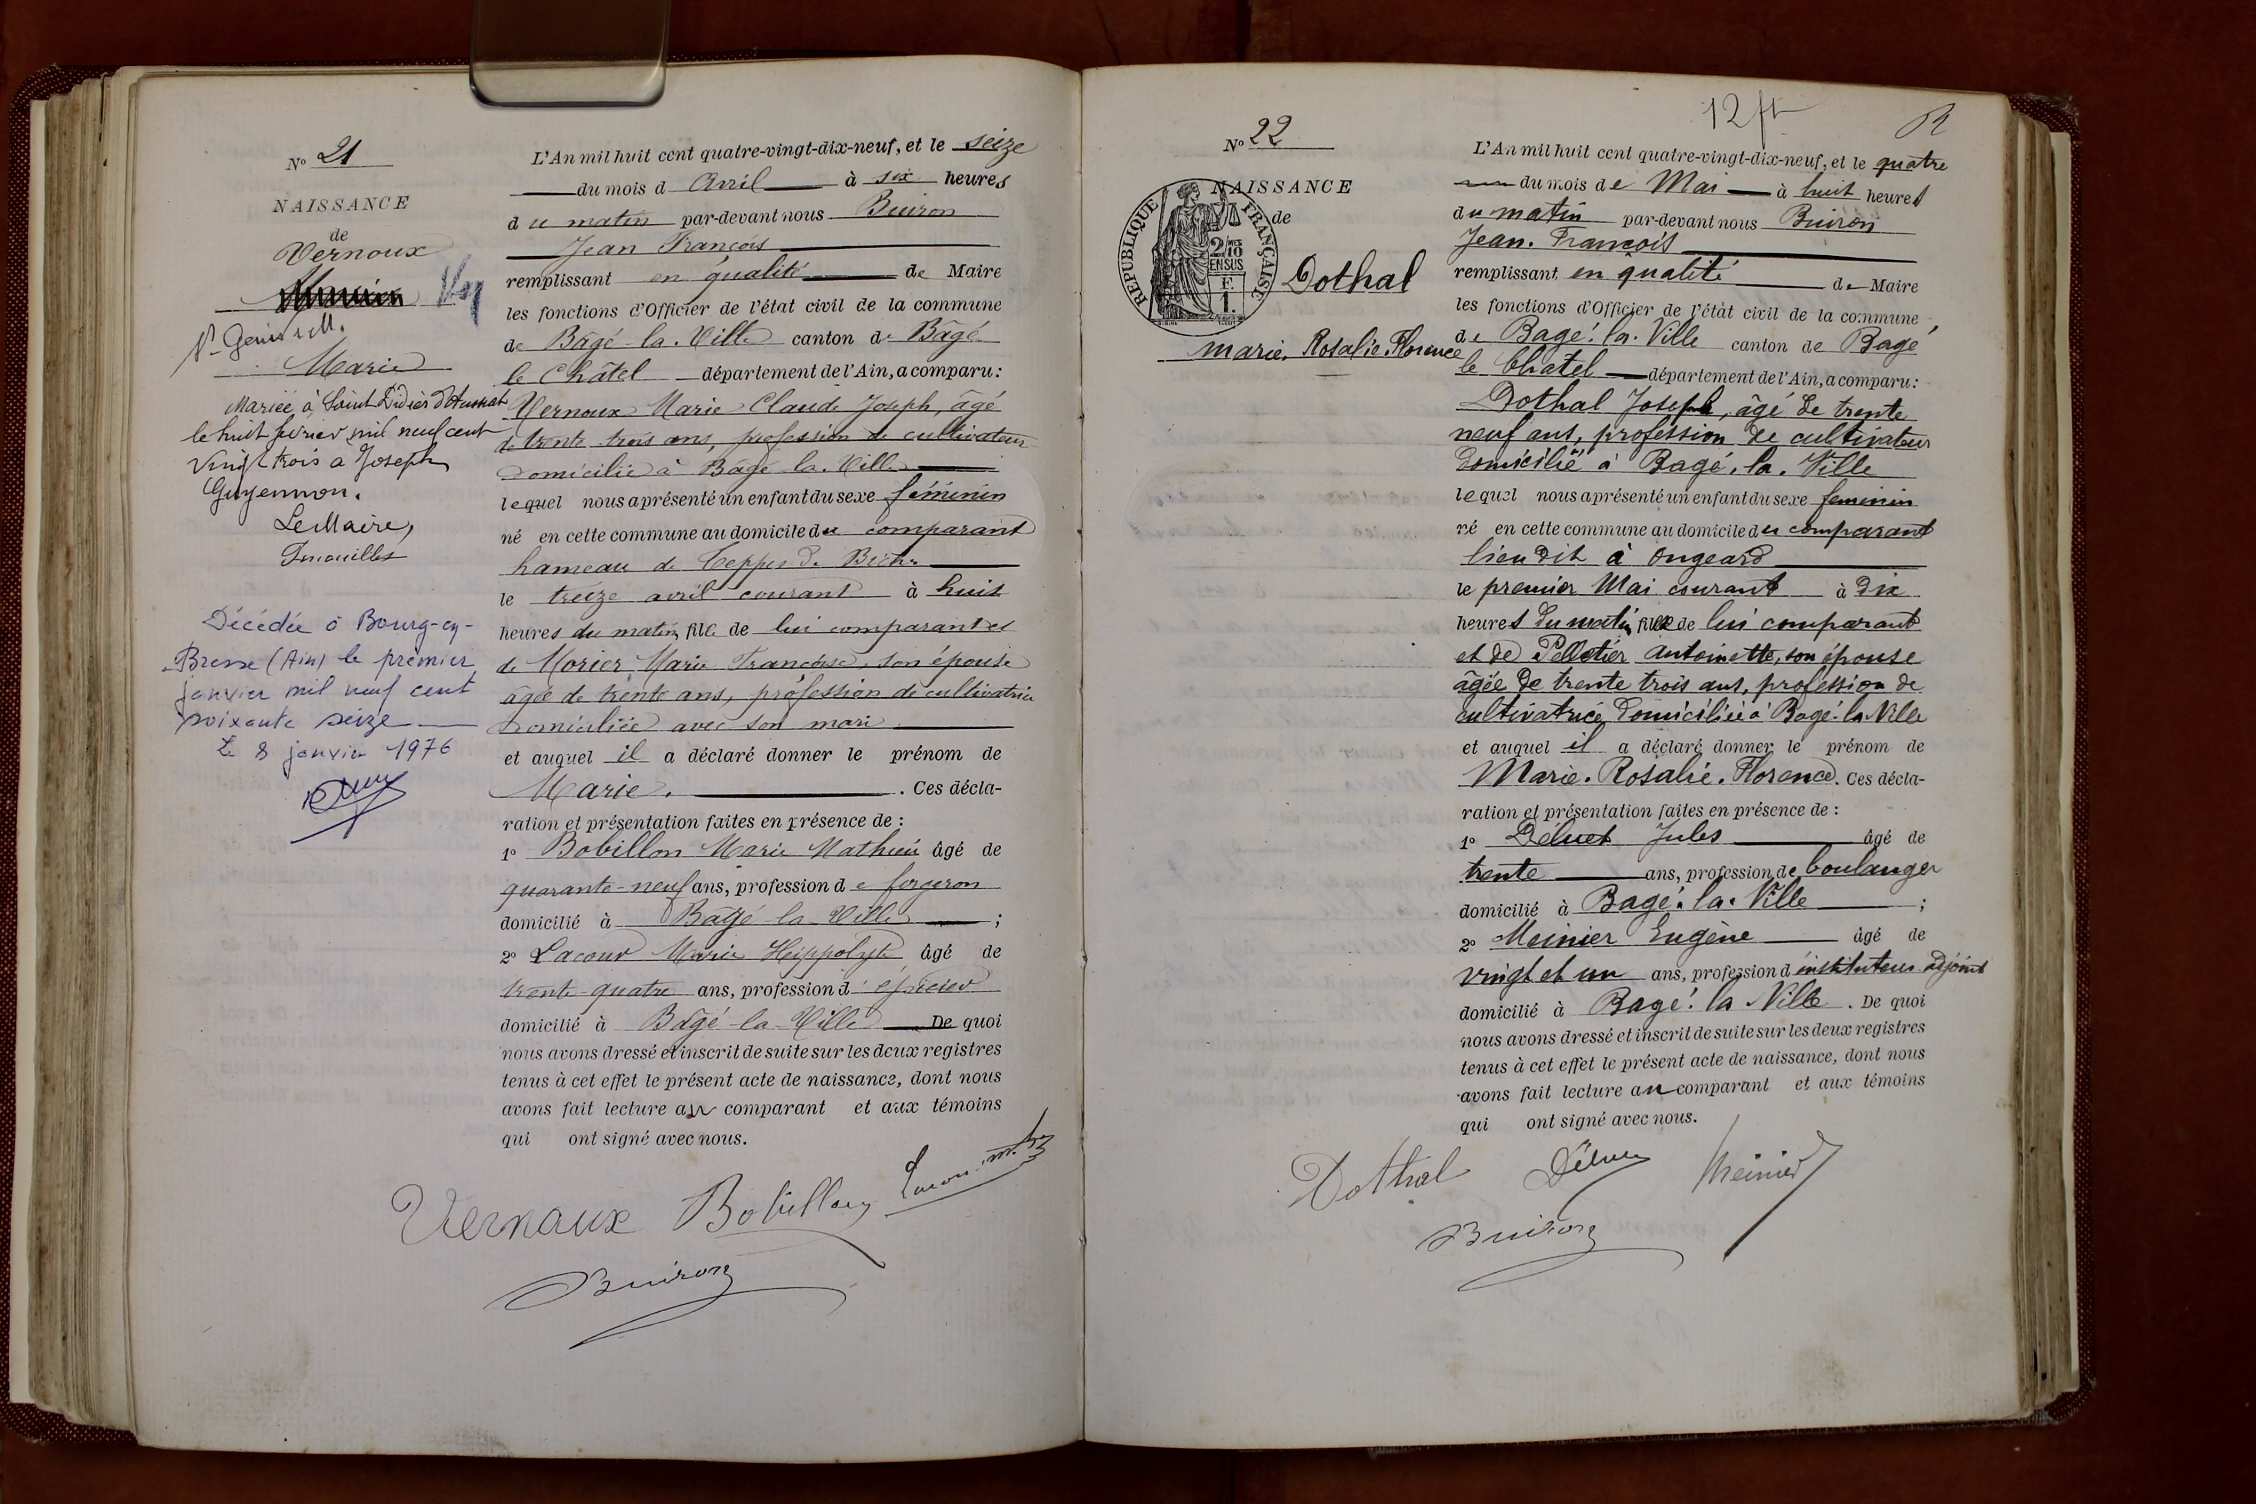 N° 21
NAISSANCE
de
Vernoux
St Genis s M.
Marie
Mariée à Saint Didier d'Aussiat
le huit février mil neuf cent
vingt trois a Joseph
Guyennon.
Le Maire,
Décédée à Bourg-en-
Bresse (Ain) le premier
janvier mil neuf cent
soixante seize
Le 8 janvier 1976
L'An mil huit cent quatre-vingt-dix-neuf, et le seize
du mois d Avril à six heures
du matin par-devant nous Buiron
Jean François
remplissant en qualité de Maire
les fonctions d'Officier de l'état civil de la commune
de Bâgé-la-Ville canton de Bâgé
le Châtel département de l'Ain, a comparu:
Vernoux Marie Claude Joseph, âgé
de trente trois ans, profession de cultivateur
domicilié à Bâgé la Ville
lequel nous a présenté un enfant du sexe féminin
né en cette commune au domicile du comparant
hameau de Teppes de
le treize avril courant à huit
heures du matin, fille de lui comparant et
de Morier, Marie Françoise, son épouse
âgée de trente ans, profession de cultivatrice
domiciliée avec son mari
et auquel il a déclaré donner le prénom de
Marie. . Ces décla-
ration et présentation faites en présence de :
1° Bobillon Marie Mathieu âgé de
quarante-neuf ans, profession de forgeron
domicilié à Bâgé la Ville ;
2° Lacour Marie Hippolyte âgé de
trente-quatre ans, profession d'épicier
domicilié à Bâgé-la-Ville De quoi
nous avons dressé et inscrit de suite sur les deux registres
tenus à cet effet le présent acte de naissance, dont nous
avons fait lecture au comparant et aux témoins
qui ont signé avec nous.
Vernoux Bobillon
Buiron
12 ft
R
N° 22
NAISSANCE
de
RÉPUBLIQUE FRANÇAISE
2/10
EN SUS
F.
1.
Dothal
Marie. Rosalie. Florence
L'An mil huit cent quatre-vingt-dix-neuf, et le quatre
du mois de Mai à huit heures
du matin par-devant nous Buiron
Jean. François
remplissant en qualité de Maire
les fonctions d'Officier de l'état civil de la commune
de Bagé. la. Ville canton de Bagé
le Chatel département de l'Ain, a comparu:
Dothal Joseph, âgé de trente
neuf ans, profession de cultivateur
domicilié à Bagé. la. Ville
lequel nous a présenté un enfant du sexe feminin
né en cette commune au domicile du comparant
lieu dit à Ongeard
le premier Mai courant à dix
heures du matin, fille de lui comparant
et de Pelletier Antoinette, son épouse
âgée de trente trois ans, profession de
cultivatrice domiciliée à Bagé-la-Ville
et auquel il a déclaré donner le prénom de
Marie. Rosalie. Florence. Ces décla-
ration et présentation faites en présence de :
1° Déluet Jules âgé de
trente ans, profession de boulanger
domicilié à Bagé. la. Ville ;
2° Meinier Eugène âgé de
vingt et un ans, profession d'instituteur adjoint
domicilié à Bagé. la Ville . De quoi
nous avons dressé et inscrit de suite sur les deux registres
tenus à cet effet le présent acte de naissance, dont nous
avons fait lecture au comparant et aux témoins
qui ont signé avec nous.
Dothal Meinier
Buiron